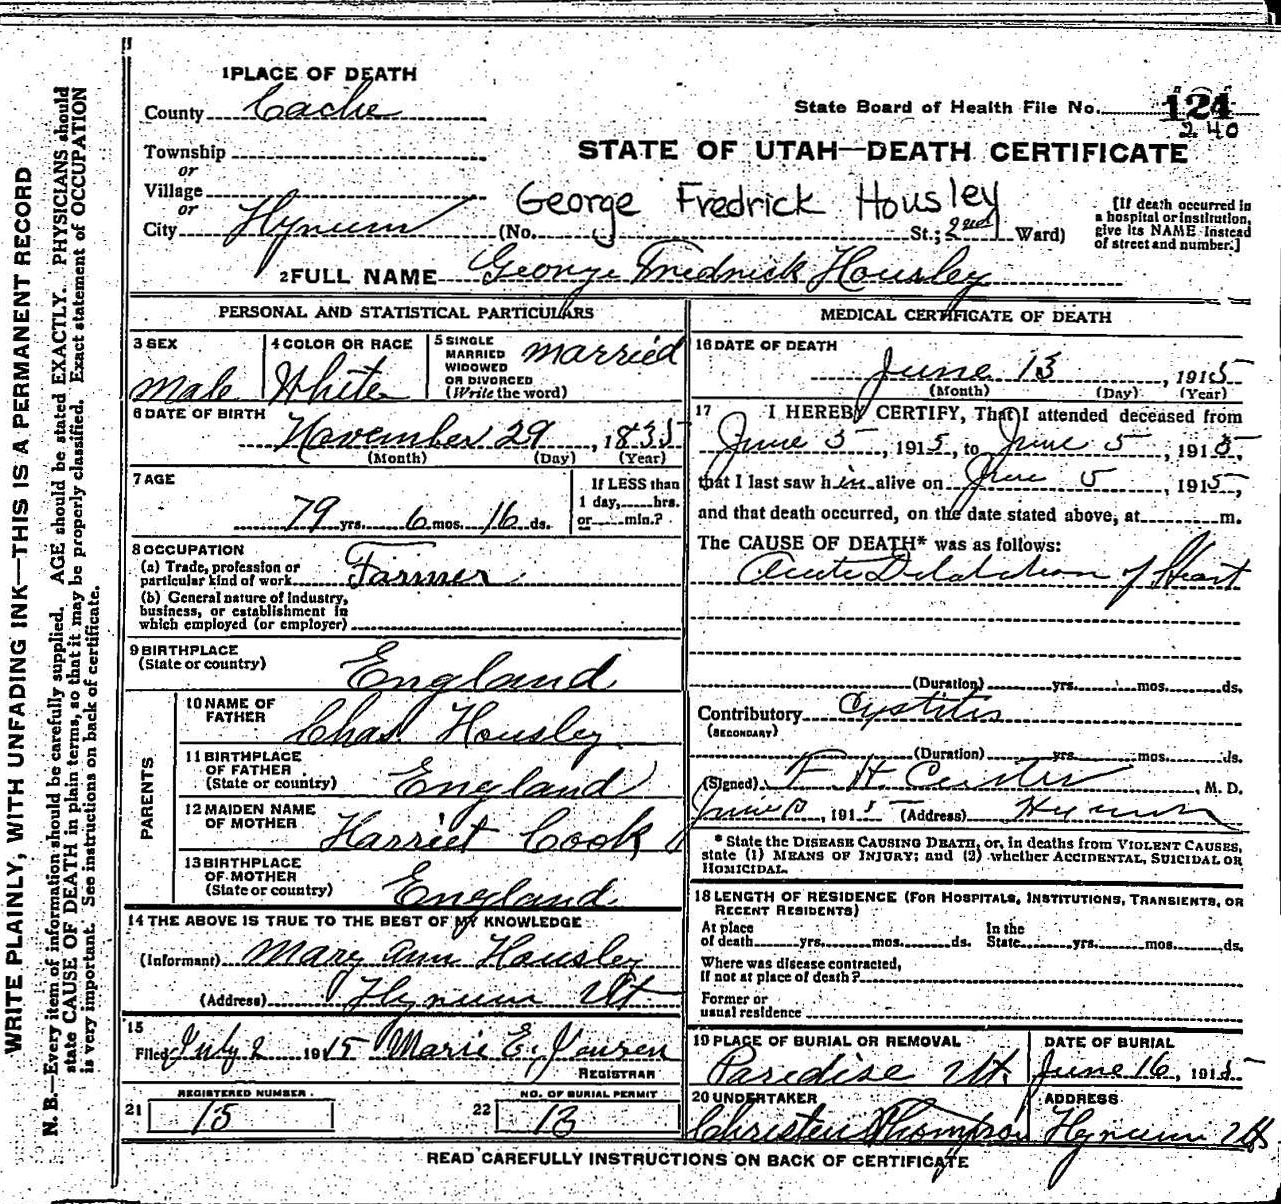 WRITE PLAINLY, WITH UNFADING INK—THIS IS A PERMANENT RECORD
N. B.—Every item of information should be carefully supplied. AGE should be stated EXACTLY. PHYSICIANS should
state CAUSE OF DEATH in plain terms, so that it may be properly classified. Exact statement of OCCUPATION
is very important. See instructions on back of certificate.
1 PLACE OF DEATH
County Cache
State Board of Health File No. 124
240
Township
or
Village
or
City Hyrum
STATE OF UTAH—DEATH CERTIFICATE
George Fredrick Housley
(No. St.; 2nd Ward)
[If death occurred in
a hospital or institution,
give its NAME instead
of street and number.]
2 FULL NAME George Fredrick Housley
PERSONAL AND STATISTICAL PARTICULARS
3 SEX
Male
4 COLOR OR RACE
White
5 SINGLE
MARRIED
WIDOWED
OR DIVORCED
(Write the word)
married
6 DATE OF BIRTH
November 29, 1835
(Month) (Day) (Year)
7 AGE
79 yrs. 6 mos. 16 ds.
If LESS than
1 day, hrs.
or min.?
8 OCCUPATION
(a) Trade, profession or
particular kind of work Farmer
(b) General nature of industry,
business, or establishment in
which employed (or employer)
9 BIRTHPLACE
(State or country)
England
PARENTS
10 NAME OF
FATHER
Chas. Housley
11 BIRTHPLACE
OF FATHER
(State or country)
England
12 MAIDEN NAME
OF MOTHER
Harriet Cook
13 BIRTHPLACE
OF MOTHER
(State or country)
England
14 THE ABOVE IS TRUE TO THE BEST OF MY KNOWLEDGE
(Informant) Mary Ann Housley
(Address) Hyrum Ut
15
Filed July 2 1915 Marie E. Jensen
REGISTRAR
REGISTERED NUMBER.
21 15
NO. OF BURIAL PERMIT
22 13
MEDICAL CERTIFICATE OF DEATH
16 DATE OF DEATH
June 13, 1915
(Month) (Day) (Year)
17 I HEREBY CERTIFY, That I attended deceased from
June 5, 1915, to June 5, 1915,
that I last saw him alive on June 5, 1915,
and that death occurred, on the date stated above, at m.
The CAUSE OF DEATH* was as follows:
Acute Dilatation of Heart
(Duration) yrs. mos. ds.
Contributory Cystitis
(SECONDARY)
(Duration) yrs. mos. ds.
(Signed) F H , M. D.
June , 191 (Address) Hyrum
* State the DISEASE CAUSING DEATH, or, in deaths from VIOLENT CAUSES,
state (1) MEANS OF INJURY; and (2) whether ACCIDENTAL, SUICIDAL OR
HOMICIDAL.
18 LENGTH OF RESIDENCE (FOR HOSPITALS, INSTITUTIONS, TRANSIENTS, OR
RECENT RESIDENTS)
At place
of death yrs. mos. ds.
In the
State yrs. mos. ds.
Where was disease contracted,
if not at place of death?
Former or
usual residence
19 PLACE OF BURIAL OR REMOVAL
Paradise Ut.
DATE OF BURIAL
June 16, 1915
20 UNDERTAKER
Christen Thompson
ADDRESS
Hyrum Ut
READ CAREFULLY INSTRUCTIONS ON BACK OF CERTIFICATE